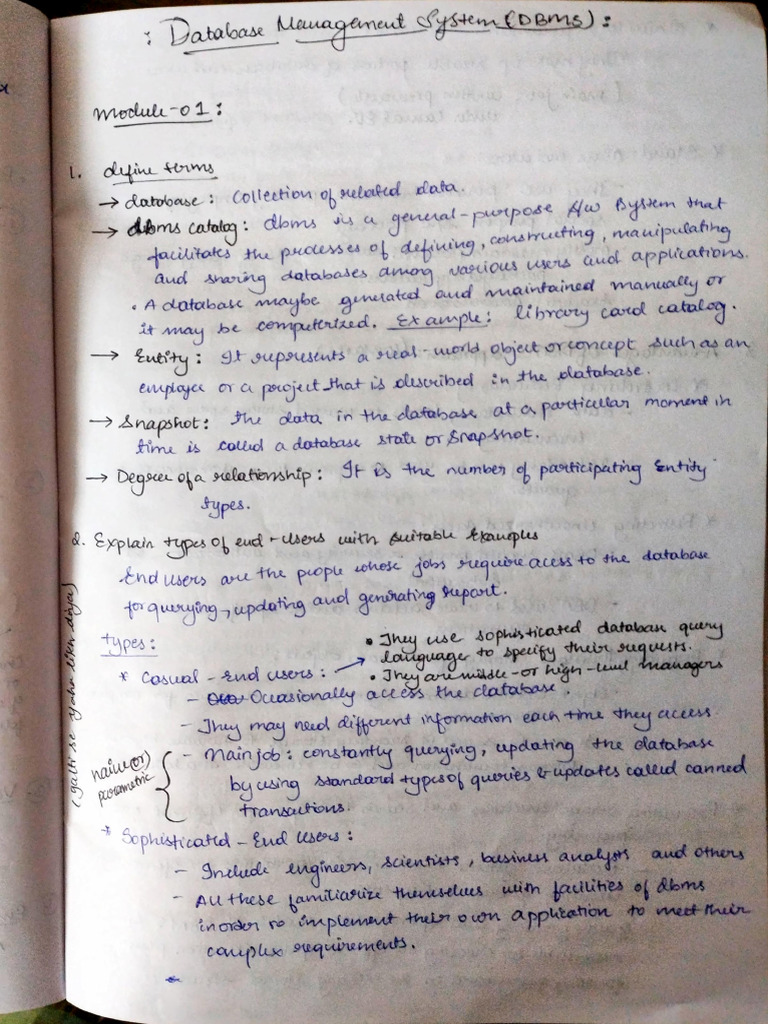 : Database Management System (DBMS) :
Module-01 :
1. define terms
→ database : collection of related data.
→ dbms catalog : dbms is a general-purpose s/w system that
facilitates the processes of defining, constructing, manipulating
and sharing databases among various users and applications.
• A database maybe generated and maintained manually or
it may be computerized. Example : library card catalog.
→ Entity : It represents a real-world object or concept such as an
employee or a project that is described in the database.
→ Snapshot : the data in the database at a particular moment in
time is called a database state or snapshot.
→ Degree of a relationship : It is the number of participating Entity
types.
2. Explain types of end-users with suitable Examples
End users are the people whose jobs require acess to the database
for querying, updating and generating report.
types :
• They use sophisticated database query
language to specify their requests.
* Casual - End users : →
• They are middle-or high-level managers
- Ocasionally access the database.
- They may need different information each time they access
- Main job : constantly querying, updating the database
by using standard types of queries & updates called canned
transactions.
naive (or)
parametric
(galti se yaha likh diya)
* Sophisticated - End Users :
- Include engineers, scientists, business analysts and others
- All these familiarize themselves with facilities of dbms
inorder to implement their own application to meet their
complex requirements.